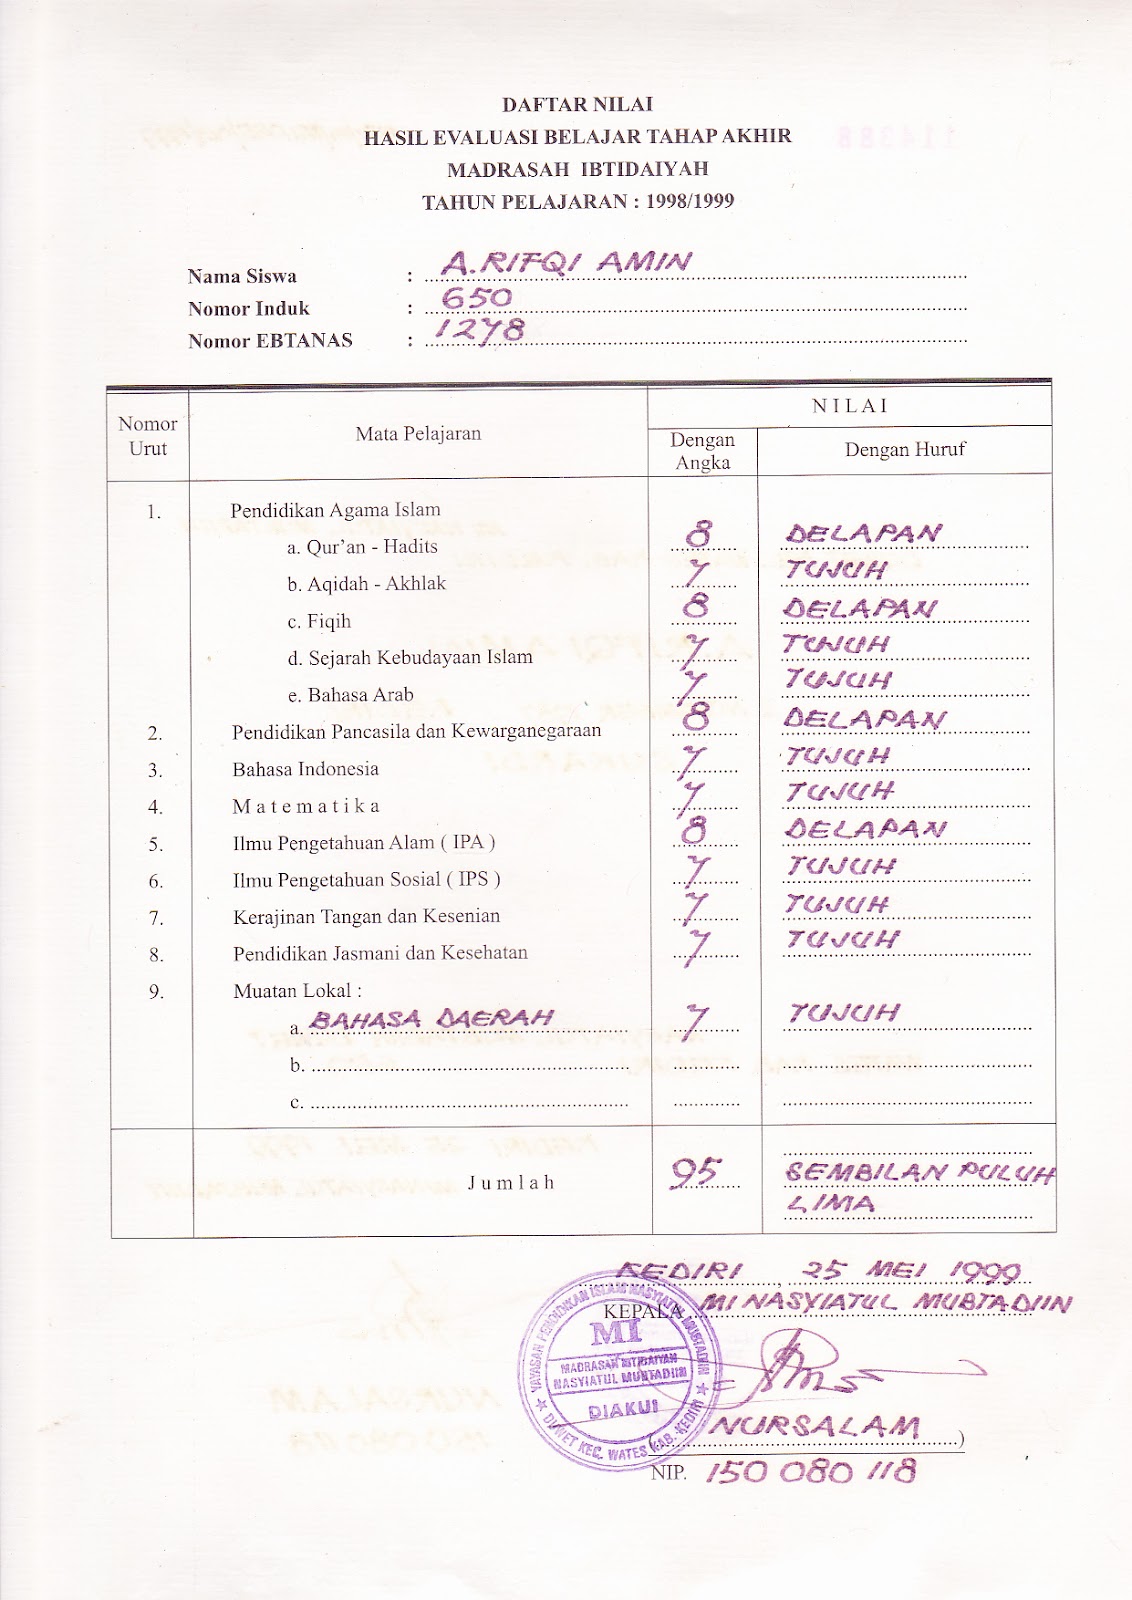 DAFTAR NILAI
HASIL EVALUASI BELAJAR TAHAP AKHIR
MADRASAH IBTIDAIYAH
TAHUN PELAJARAN : 1998/1999
Nama Siswa : A.RIFQI AMIN
Nomor Induk : 650
Nomor EBTANAS : 1278
Nomor Urut Mata Pelajaran NILAI
Dengan Angka Dengan Huruf
1. Pendidikan Agama Islam
a. Qur'an - Hadits 8 DELAPAN
b. Aqidah - Akhlak 7 TUJUH
c. Fiqih 8 DELAPAN
d. Sejarah Kebudayaan Islam 7 TUJUH
e. Bahasa Arab 7 TUJUH
2. Pendidikan Pancasila dan Kewarganegaraan 8 DELAPAN
3. Bahasa Indonesia 7 TUJUH
4. Matematika 7 TUJUH
5. Ilmu Pengetahuan Alam ( IPA ) 8 DELAPAN
6. Ilmu Pengetahuan Sosial ( IPS ) 7 TUJUH
7. Kerajinan Tangan dan Kesenian 7 TUJUH
8. Pendidikan Jasmani dan Kesehatan 7 TUJUH
9. Muatan Lokal :
a. BAHASA DAERAH 7 TUJUH
b.
c.
Jumlah 95 SEMBILAN PULUH
LIMA
KEDIRI, 25 MEI 1999
KEPALA MI NASYIATUL MUBTADIIN
YAYASAN PENDIDIKAN ISLAM NASYIATUL MUBTADIIN
MI
MADRASAH IBTIDAIYAH
NASYIATUL MUBTADIIN
DIAKUI
DUWET KEC. WATES KAB. KEDIRI
(NURSALAM)
NIP. 150 080 118